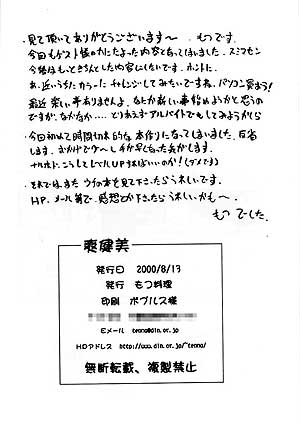 ・見て頂いてありがとうございます〜 もつです。
今回もゲスト様の力になった内容となってしまいました。スミマセン
今後はもっときちんとした内容にしたいです。ホントに。
あ、近いうちにカラーにチャレンジしてみたいですね、パソコン買おう!
最近 楽しい事ありませんよ、なにか新しい事始めようかと思うの
ですが、なかなか…。とりあえずアルバイトでもしてみようかしら
・今回初めて時間切れ的な本作りになってしまいました。反省
します。おかげで〜し手が早くなった気がします。
ナルホド、こうしてレベルUPすればいいのか!(ダメです)
・それでは、また ウチの本を見て下さったらうれしいです。
HP、メール等で感想とか下さったらうれしいかも〜
もつ でした。
表健美
発行日 2000/8/13
発行 もつ料理
印刷 ポプルス様
Eメール
HPアドレス
無断転載、複製禁止